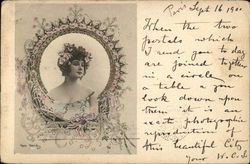 Paris Sept 16 1900
When the two
postals which
I send you to day
are joined together
in a circle on
a table & you
look down upon
them it is an
exact photographic
reproduction of
this beautiful City
Your W.C.